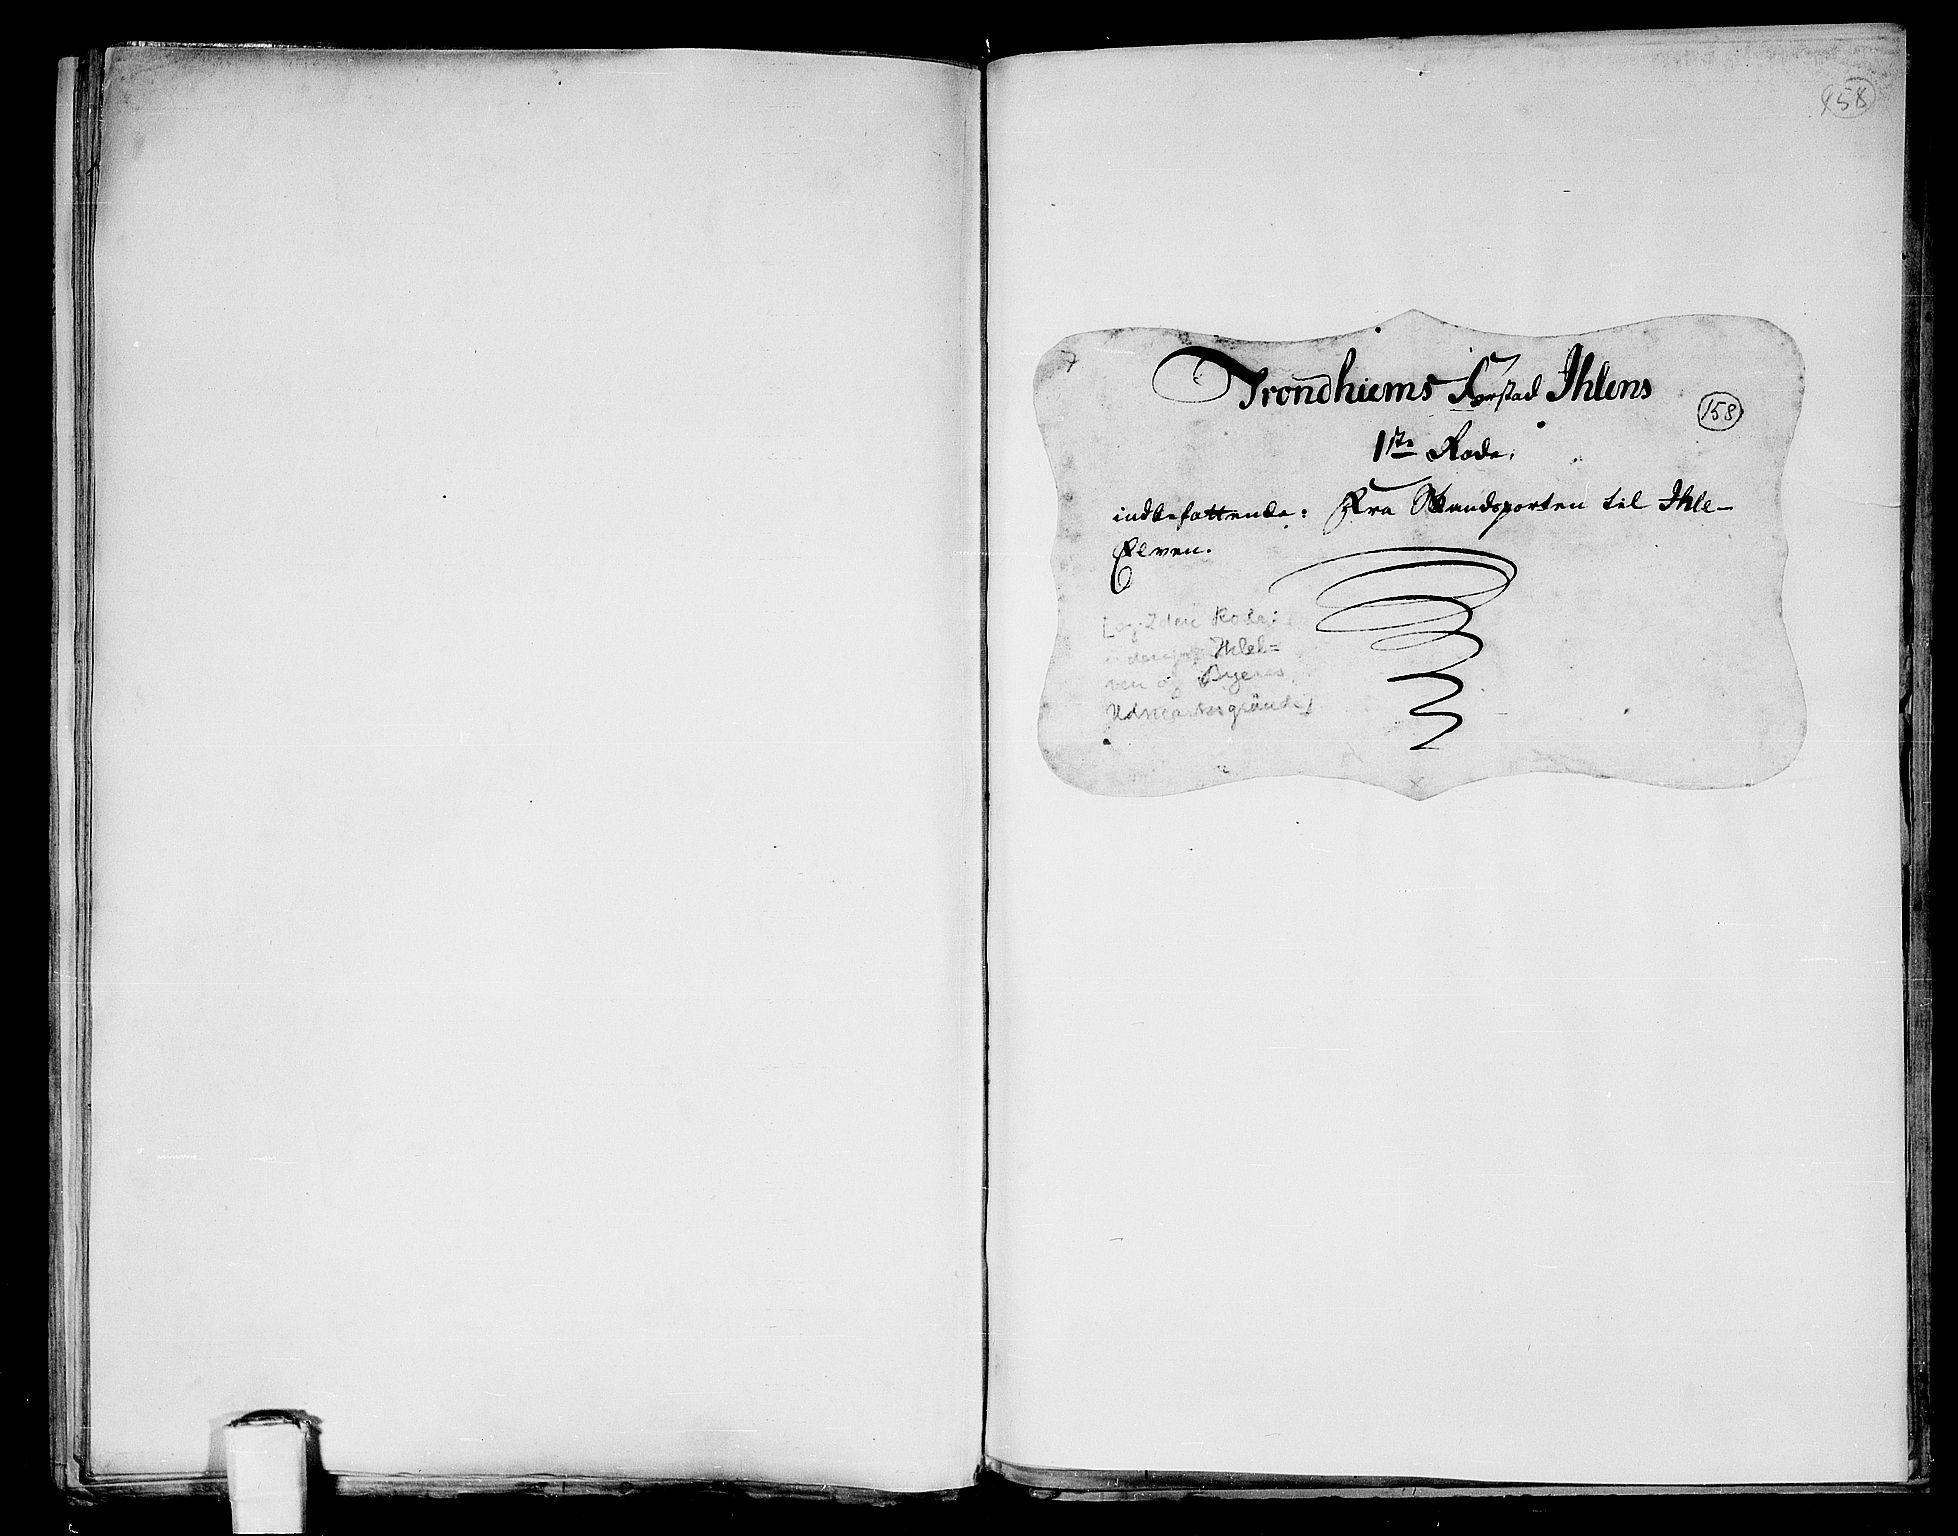 158
Trondhiems Forstad Ihlens
158
1ste Rode.
indbefattende: Fra Skandsporten til Ihle-
Elven.
[og 2den Rode:
Ihlel=
ven og Byens
Udmarksgrund]